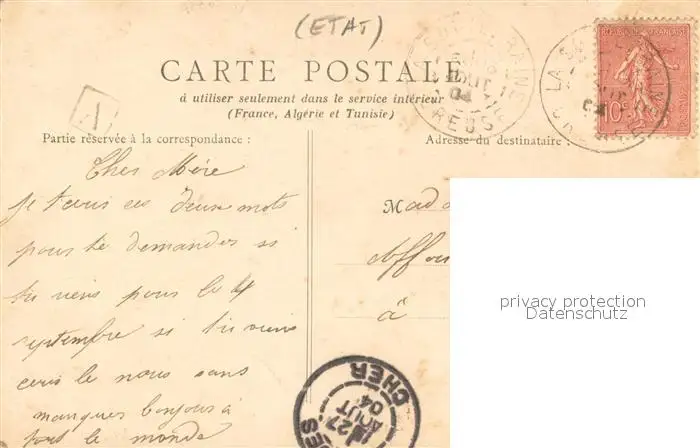 (ETAT)
CARTE POSTALE
à utiliser seulement dans le service intérieur
(France, Algérie et Tunisie)
Partie réservée à la correspondance :
Adresse du destinataire :
REPUBLIQUE FRANÇAISE
10c
LA SOUTERRAINE
CREUSE
AOUT
04
LA SOUTERRAINE
CREUSE
A
Cher Mère
Je t'ecris ces deux mots
pour te demander si
tu viens pour le 4
septembre si tu viens
ecris le nous sans
manquer bonjour à
tout le monde
Mada
Affou
à
privacy protection
Datenschutz
CHER
27
AOUT
04